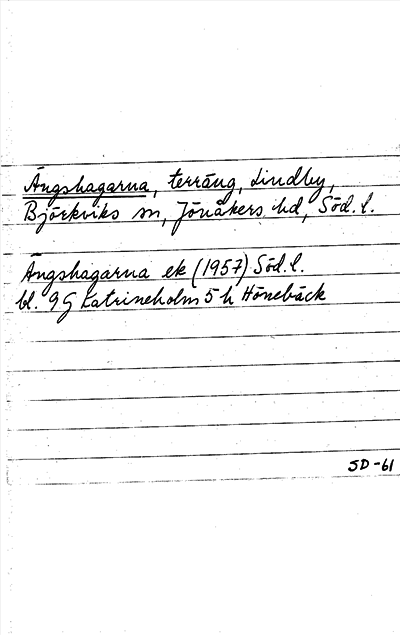 Ängshagarna, terräng, Lindby,
Björkviks sn, Jönåkers hd, Söd. l.
Ängshagarna ek (1957) Söd. l.
bl. 9 G Katrineholm 5 h Hönebäck
SD-61